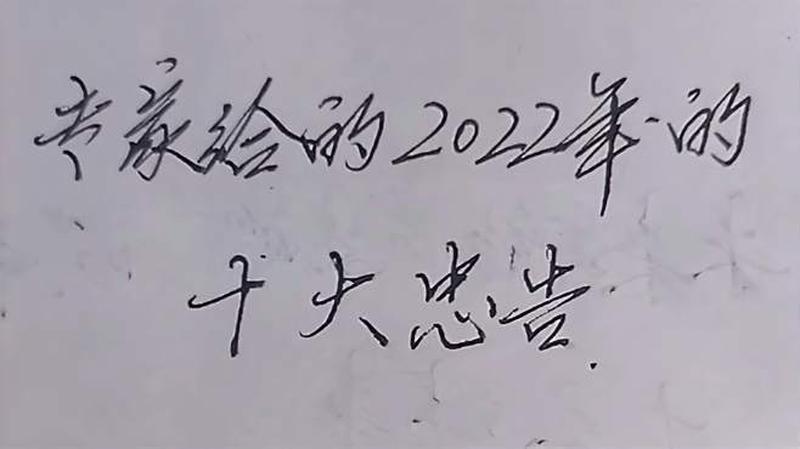 专家给的2022年的
十大忠告